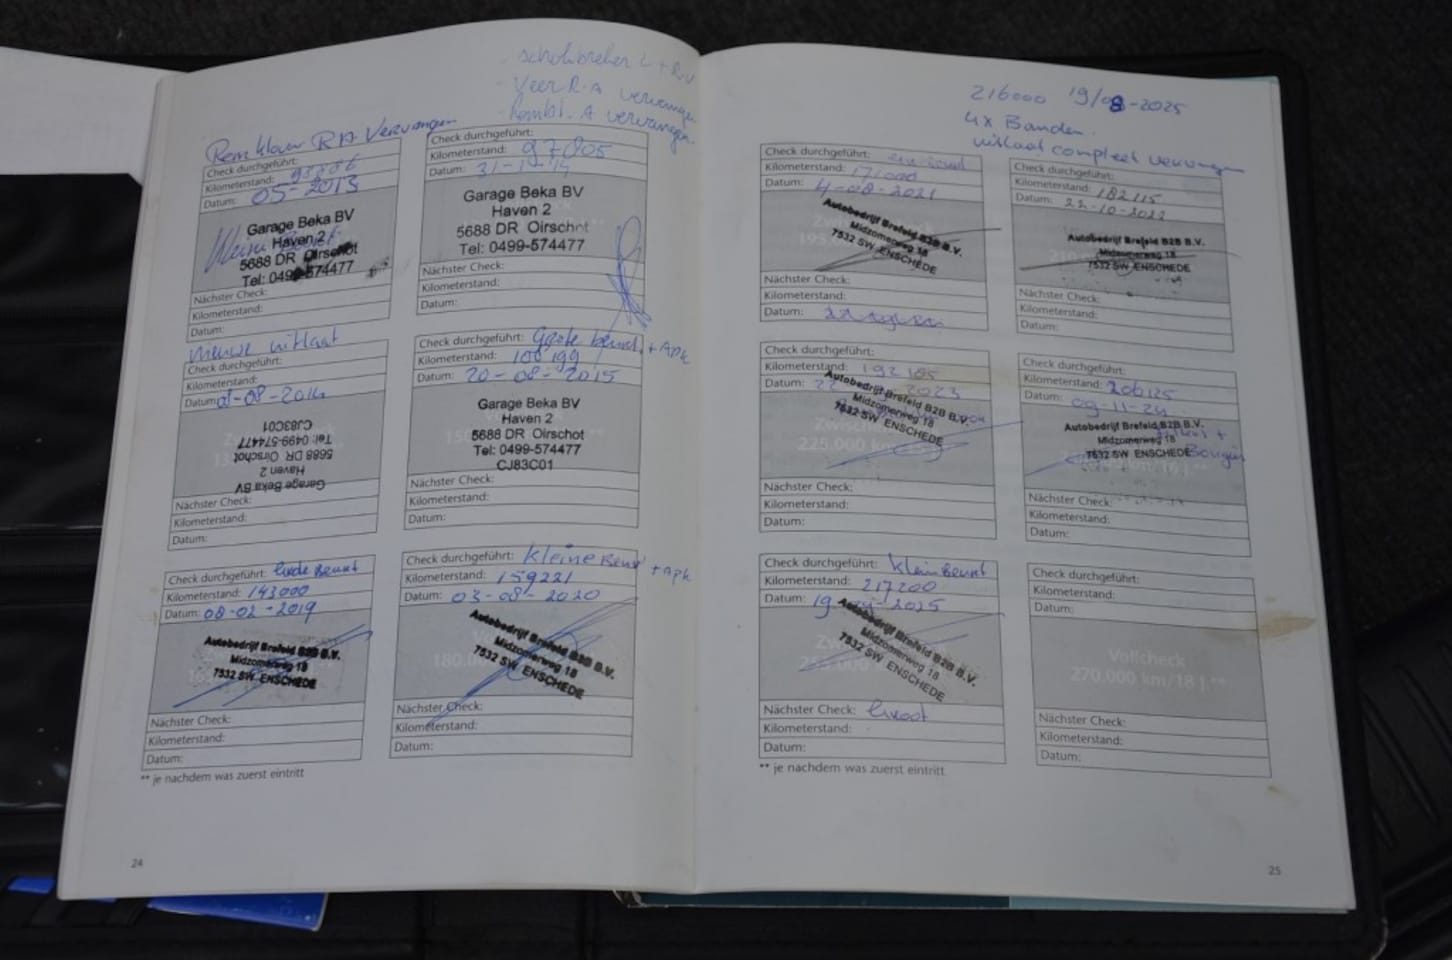 - schokbreker L + R.V
- Veer R.A vervangen
- Kombi. A vervangen.
Remklauw R A Vervangen
Check durchgeführt:
Kilometerstand: 93886
Datum: 05-2013
Garage Beka BV
Haven 2
5688 DR Oirschot
Tel: 0499-574477
Nächster Check:
Kilometerstand:
Datum:
Check durchgeführt:
Kilometerstand: 97805
Datum:
Garage Beka BV
Haven 2
5688 DR Oirschot
Tel: 0499-574477
Nächster Check:
Kilometerstand:
Datum:
nieuwe uitlaat
Check durchgeführt:
Kilometerstand:
Datum: 01-08-2014
Garage Beka BV
Haven 2
5688 DR Oirschot
Tel: 0499-574477
CJ83C01
Nächster Check:
Kilometerstand:
Datum:
Check durchgeführt: Grote beurt. + APK
Kilometerstand: 100199
Datum: 20-08-2015
Garage Beka BV
Haven 2
5688 DR Oirschot
Tel: 0499-574477
CJ83C01
Nächster Check:
Kilometerstand:
Datum:
Check durchgeführt: Beurt
Kilometerstand: 143000
Datum: 08-02-2019
Autobedrijf Brefeld B2B B.V.
Midzomerweg 18
7532 SW ENSCHEDE
Nächster Check:
Kilometerstand:
Datum:
Check durchgeführt: kleine Beurt + APK
Kilometerstand: 159221
Datum: 03-08-2020
Autobedrijf Brefeld B2B B.V.
Midzomerweg 18
7532 SW ENSCHEDE
180.00
Nächster Check:
Kilometerstand:
Datum:
** je nachdem was zuerst eintritt
24
216000 19/08-2025
4x Banden.
uitlaat compleet vervangen
Check durchgeführt:
Kilometerstand: 171000
Datum: 4-08-2021
Autobedrijf Brefeld B2B B.V.
Midzomerweg 18
7532 SW ENSCHEDE
195.0
Nächster Check:
Kilometerstand:
Datum:
Check durchgeführt:
Kilometerstand: 182115
Datum: 22-10-2022
Autobedrijf Brefeld B2B B.V.
Midzomerweg 18
7532 SW ENSCHEDE
Nächster Check:
Kilometerstand:
Datum:
Check durchgeführt:
Kilometerstand: 192185
Datum: 22 2023
Autobedrijf Brefeld B2B B.V.
Midzomerweg 18
7532 SW ENSCHEDE
225.000 km
Nächster Check:
Kilometerstand:
Datum:
Check durchgeführt:
Kilometerstand: 206125
Datum: 09-11-24
Autobedrijf Brefeld B2B B.V.
Midzomerweg 18
7532 SW ENSCHEDE
Bougies
Nächster Check:
Kilometerstand:
Datum:
Check durchgeführt: klein Beurt
Kilometerstand: 217200
Datum: 19 2025
Autobedrijf Brefeld B2B B.V.
Midzomerweg 18
7532 SW ENSCHEDE
Nächster Check: Groot
Kilometerstand:
Datum:
Check durchgeführt:
Kilometerstand:
Datum:
Vollcheck
270.000 km/18 J.**
Nächster Check:
Kilometerstand:
Datum:
** je nachdem was zuerst eintritt
25